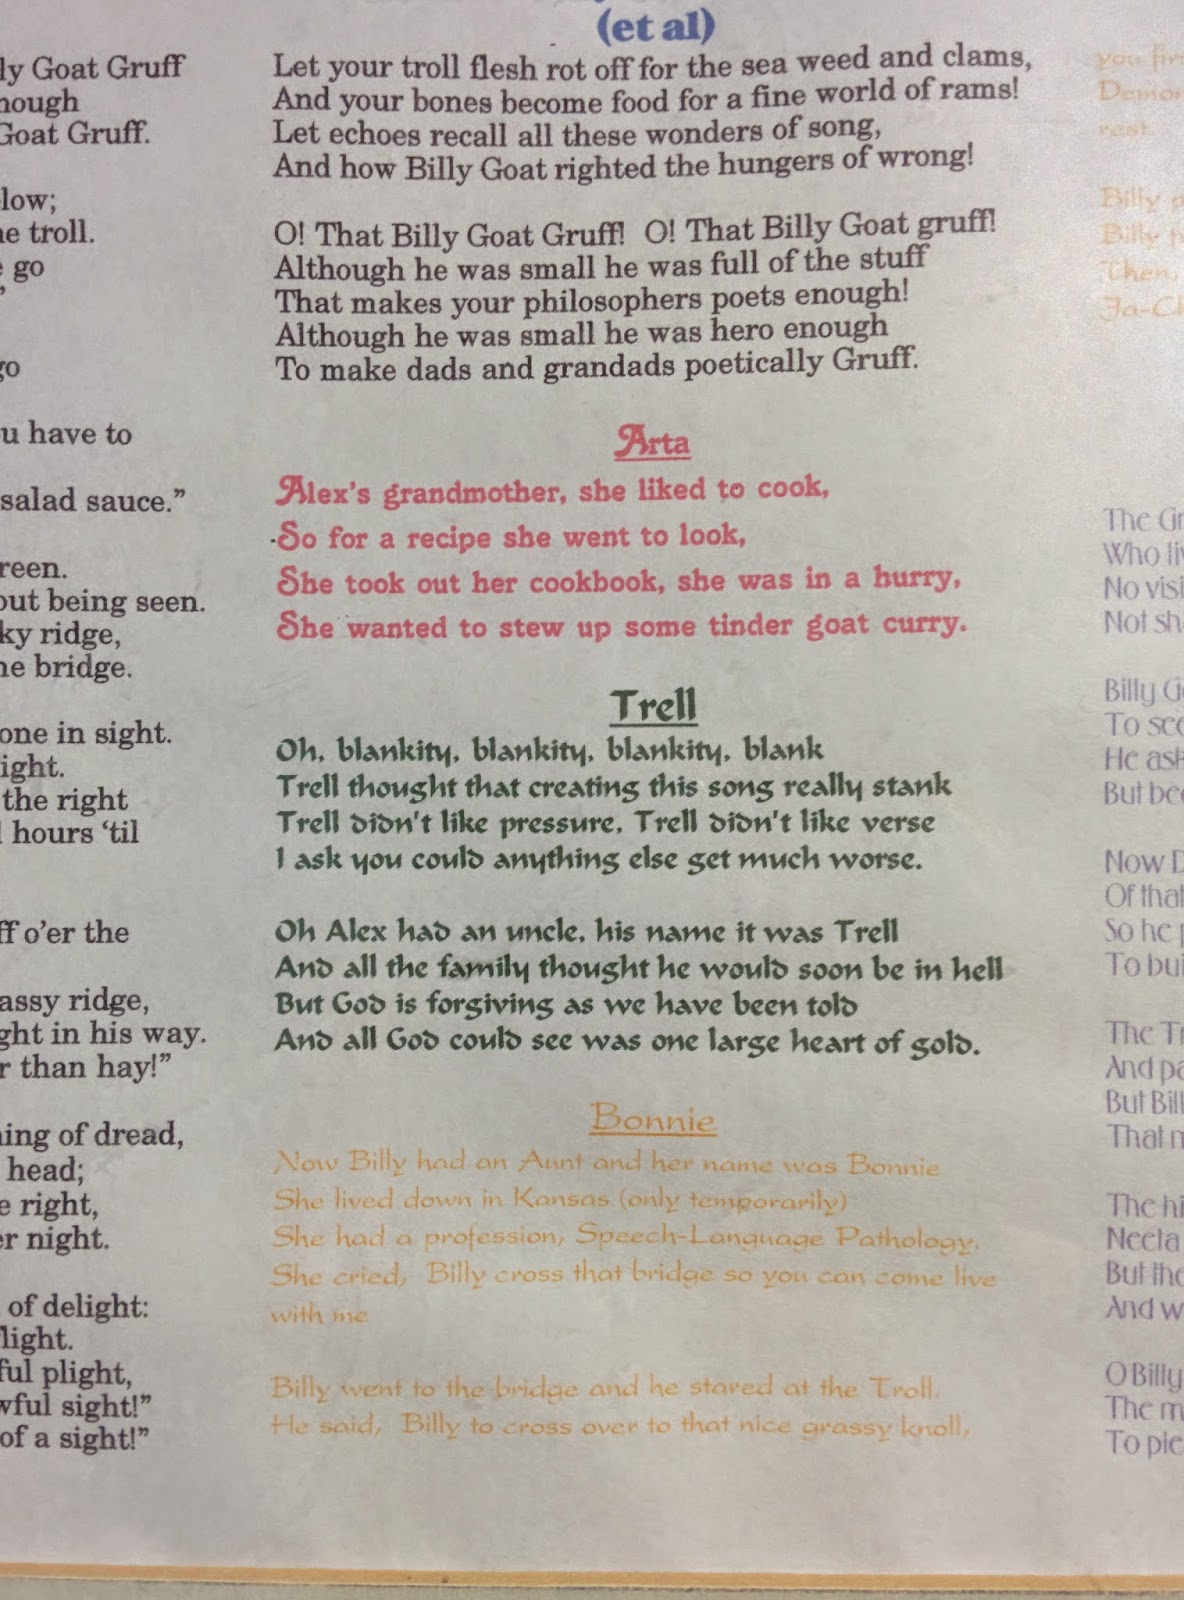 ly Goat Gruff
nough
Goat Gruff.
low;
e troll.
go
go
u have to
salad sauce.”
reen.
out being seen.
ky ridge,
he bridge.
one in sight.
ight.
the right
l hours ‘til
ff o’er the
assy ridge,
ght in his way.
r than hay!”
ning of dread,
head;
e right,
er night.
of delight:
light.
ful plight,
wful sight!”
of a sight!”
(et al)
Let your troll flesh rot off for the sea weed and clams,
And your bones become food for a fine world of rams!
Let echoes recall all these wonders of song,
And how Billy Goat righted the hungers of wrong!
O! That Billy Goat Gruff!  O! That Billy Goat gruff!
Although he was small he was full of the stuff
That makes your philosophers poets enough!
Although he was small he was hero enough
To make dads and grandads poetically Gruff.
Arta
Alex's grandmother, she liked to cook,
So for a recipe she went to look,
She took out her cookbook, she was in a hurry,
She wanted to stew up some tinder goat curry.
Trell
Oh, blankity, blankity, blankity, blank
Trell thought that creating this song really stank
Trell didn't like pressure, Trell didn't like verse
I ask you could anything else get much worse.
Oh Alex had an uncle, his name it was Trell
And all the family thought he would soon be in hell
But God is forgiving as we have been told
And all God could see was one large heart of gold.
Bonnie
Now Billy had an Aunt and her name was Bonnie
She lived down in Kansas (only temporarily)
She had a profession, Speech-Language Pathology,
She cried,  Billy cross that bridge so you can come live
with me
Billy went to the bridge and he stared at the Troll.
He said,  Billy to cross over to that nice grassy knoll,
you fir
Demon
rest.
Billy
Billy
Then,
Fa-Ch
The Gr
Who liv
No visi
Not sh
Billy G
To see
He ask
But bec
Now D
Of that
So he p
To bui
The Tr
And pa
But Bill
That m
The hi
Neeta
But tho
And w
O Billy
The m
To ple